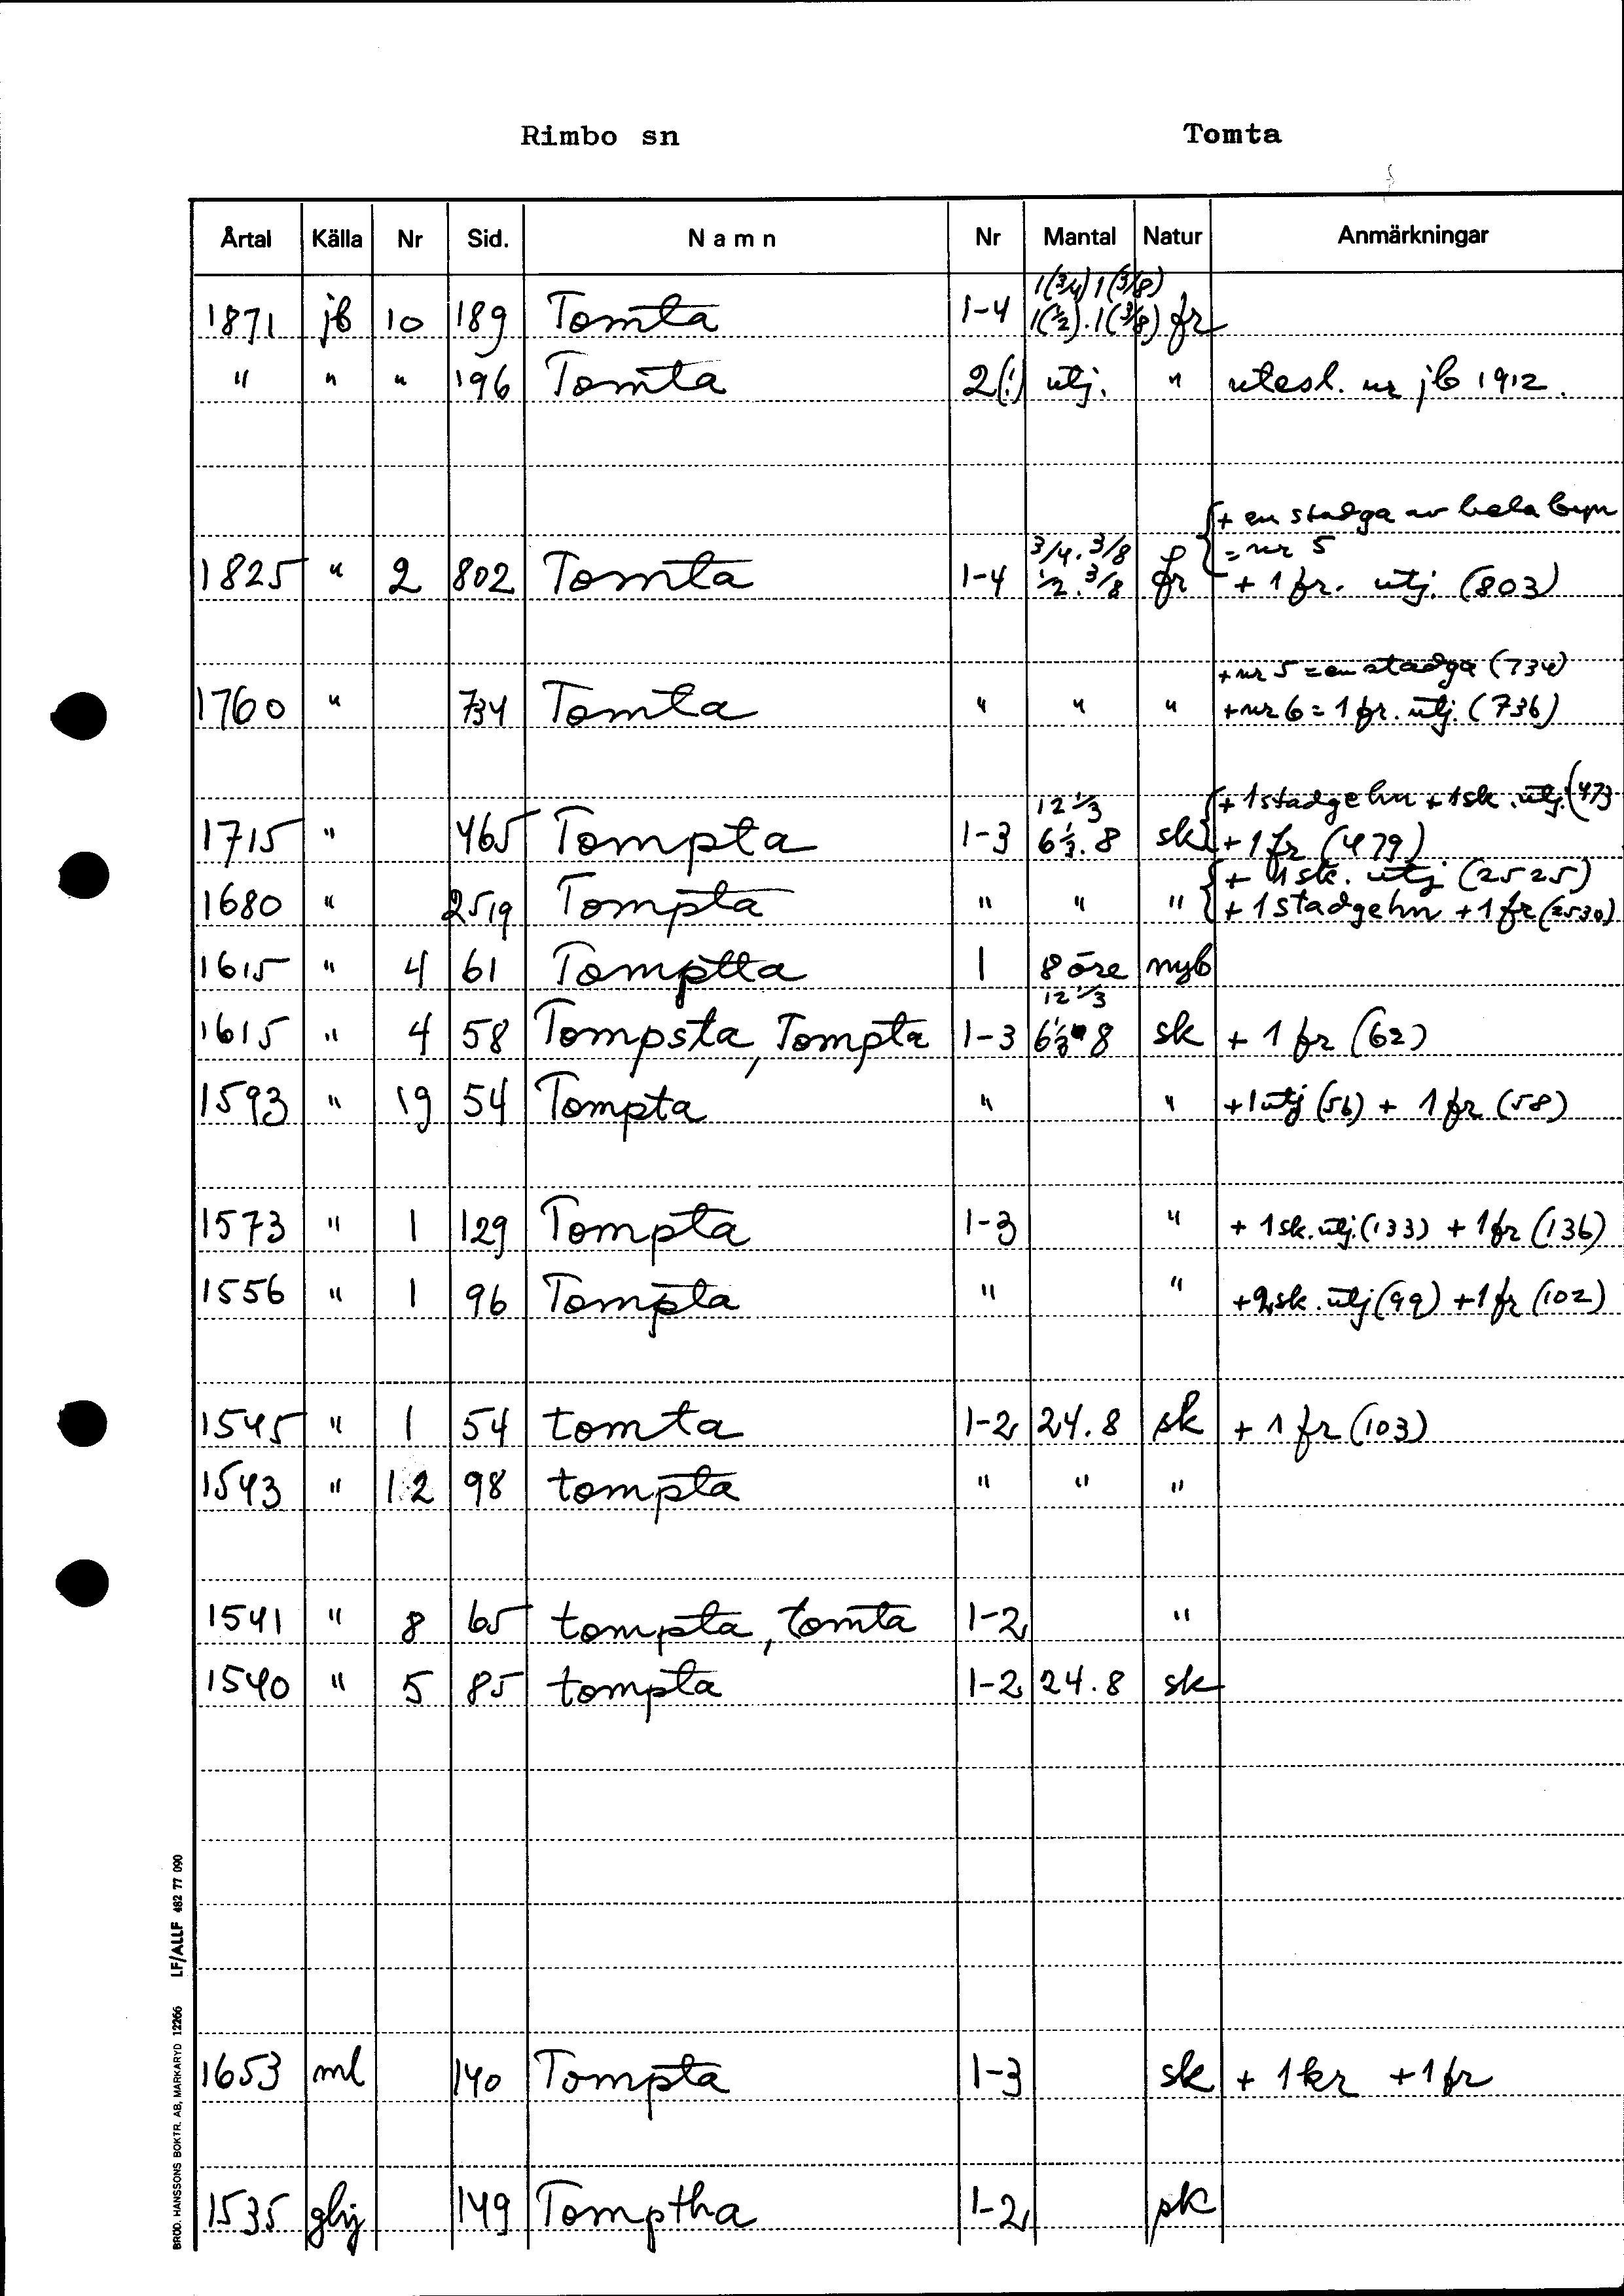 Rimbo sn Tomta
Årtal Källa Nr Sid. Namn Nr Mantal Natur Anmärkningar
1(3/4) 1(3/8)
1871 jb 10 189 Tomta 1-4 1(1/2). 1(3/8) fr
" " " 196 Tomta 2(!) utj. " utesl. ur jb 1912.
+ en stadga av hela byn
3/4. 3/8 = nr 5
1825 " 2 802 Tomta 1-4 1/2. 3/8 fr + 1 fr. utj. (803)
+ nr 5 = en stadga (734)
1760 " 734 Tomta " " " + nr 6 = 1 fr. utj. (736)
12 1/3 + 1 stadgehn + 1 sk. utj. (473
1715 " 465 Tompta 1-3 6 1/3. 8 sk + 1 fr (479)
+ 1 sk. utj (2525)
1680 " 2519 Tompta " " " + 1 stadgehn + 1 fr (2530)
1615 " 4 61 Tomptta 1 8 öre nyb
12 1/3
1615 " 4 58 Tompsta, Tompta 1-3 6 1/3 8 sk + 1 fr (62)
1593 " 19 54 Tompta " " + 1 utj (56) + 1 fr (58)
1573 " 1 129 Tompta 1-3 " + 1 sk. utj. (133) + 1 fr (136)
1556 " 1 96 Tompta " " + 2 sk. utj (99) + 1 fr (102)
1545 " 1 54 tomta 1-2 24. 8 sk + 1 fr (103)
1543 " 12 98 tompta " " "
1541 " 8 65 tompta, tomta 1-2 "
1540 " 5 85 tompta 1-2 24. 8 sk
1653 ml 140 Tompta 1-3 sk + 1 kr + 1 fr
1535 ghj 149 Tomptha 1-2 sk
BRÖD. HANSSONS BOKTR. AB, MARKARYD 12266 LF/ALLF 482 77 090